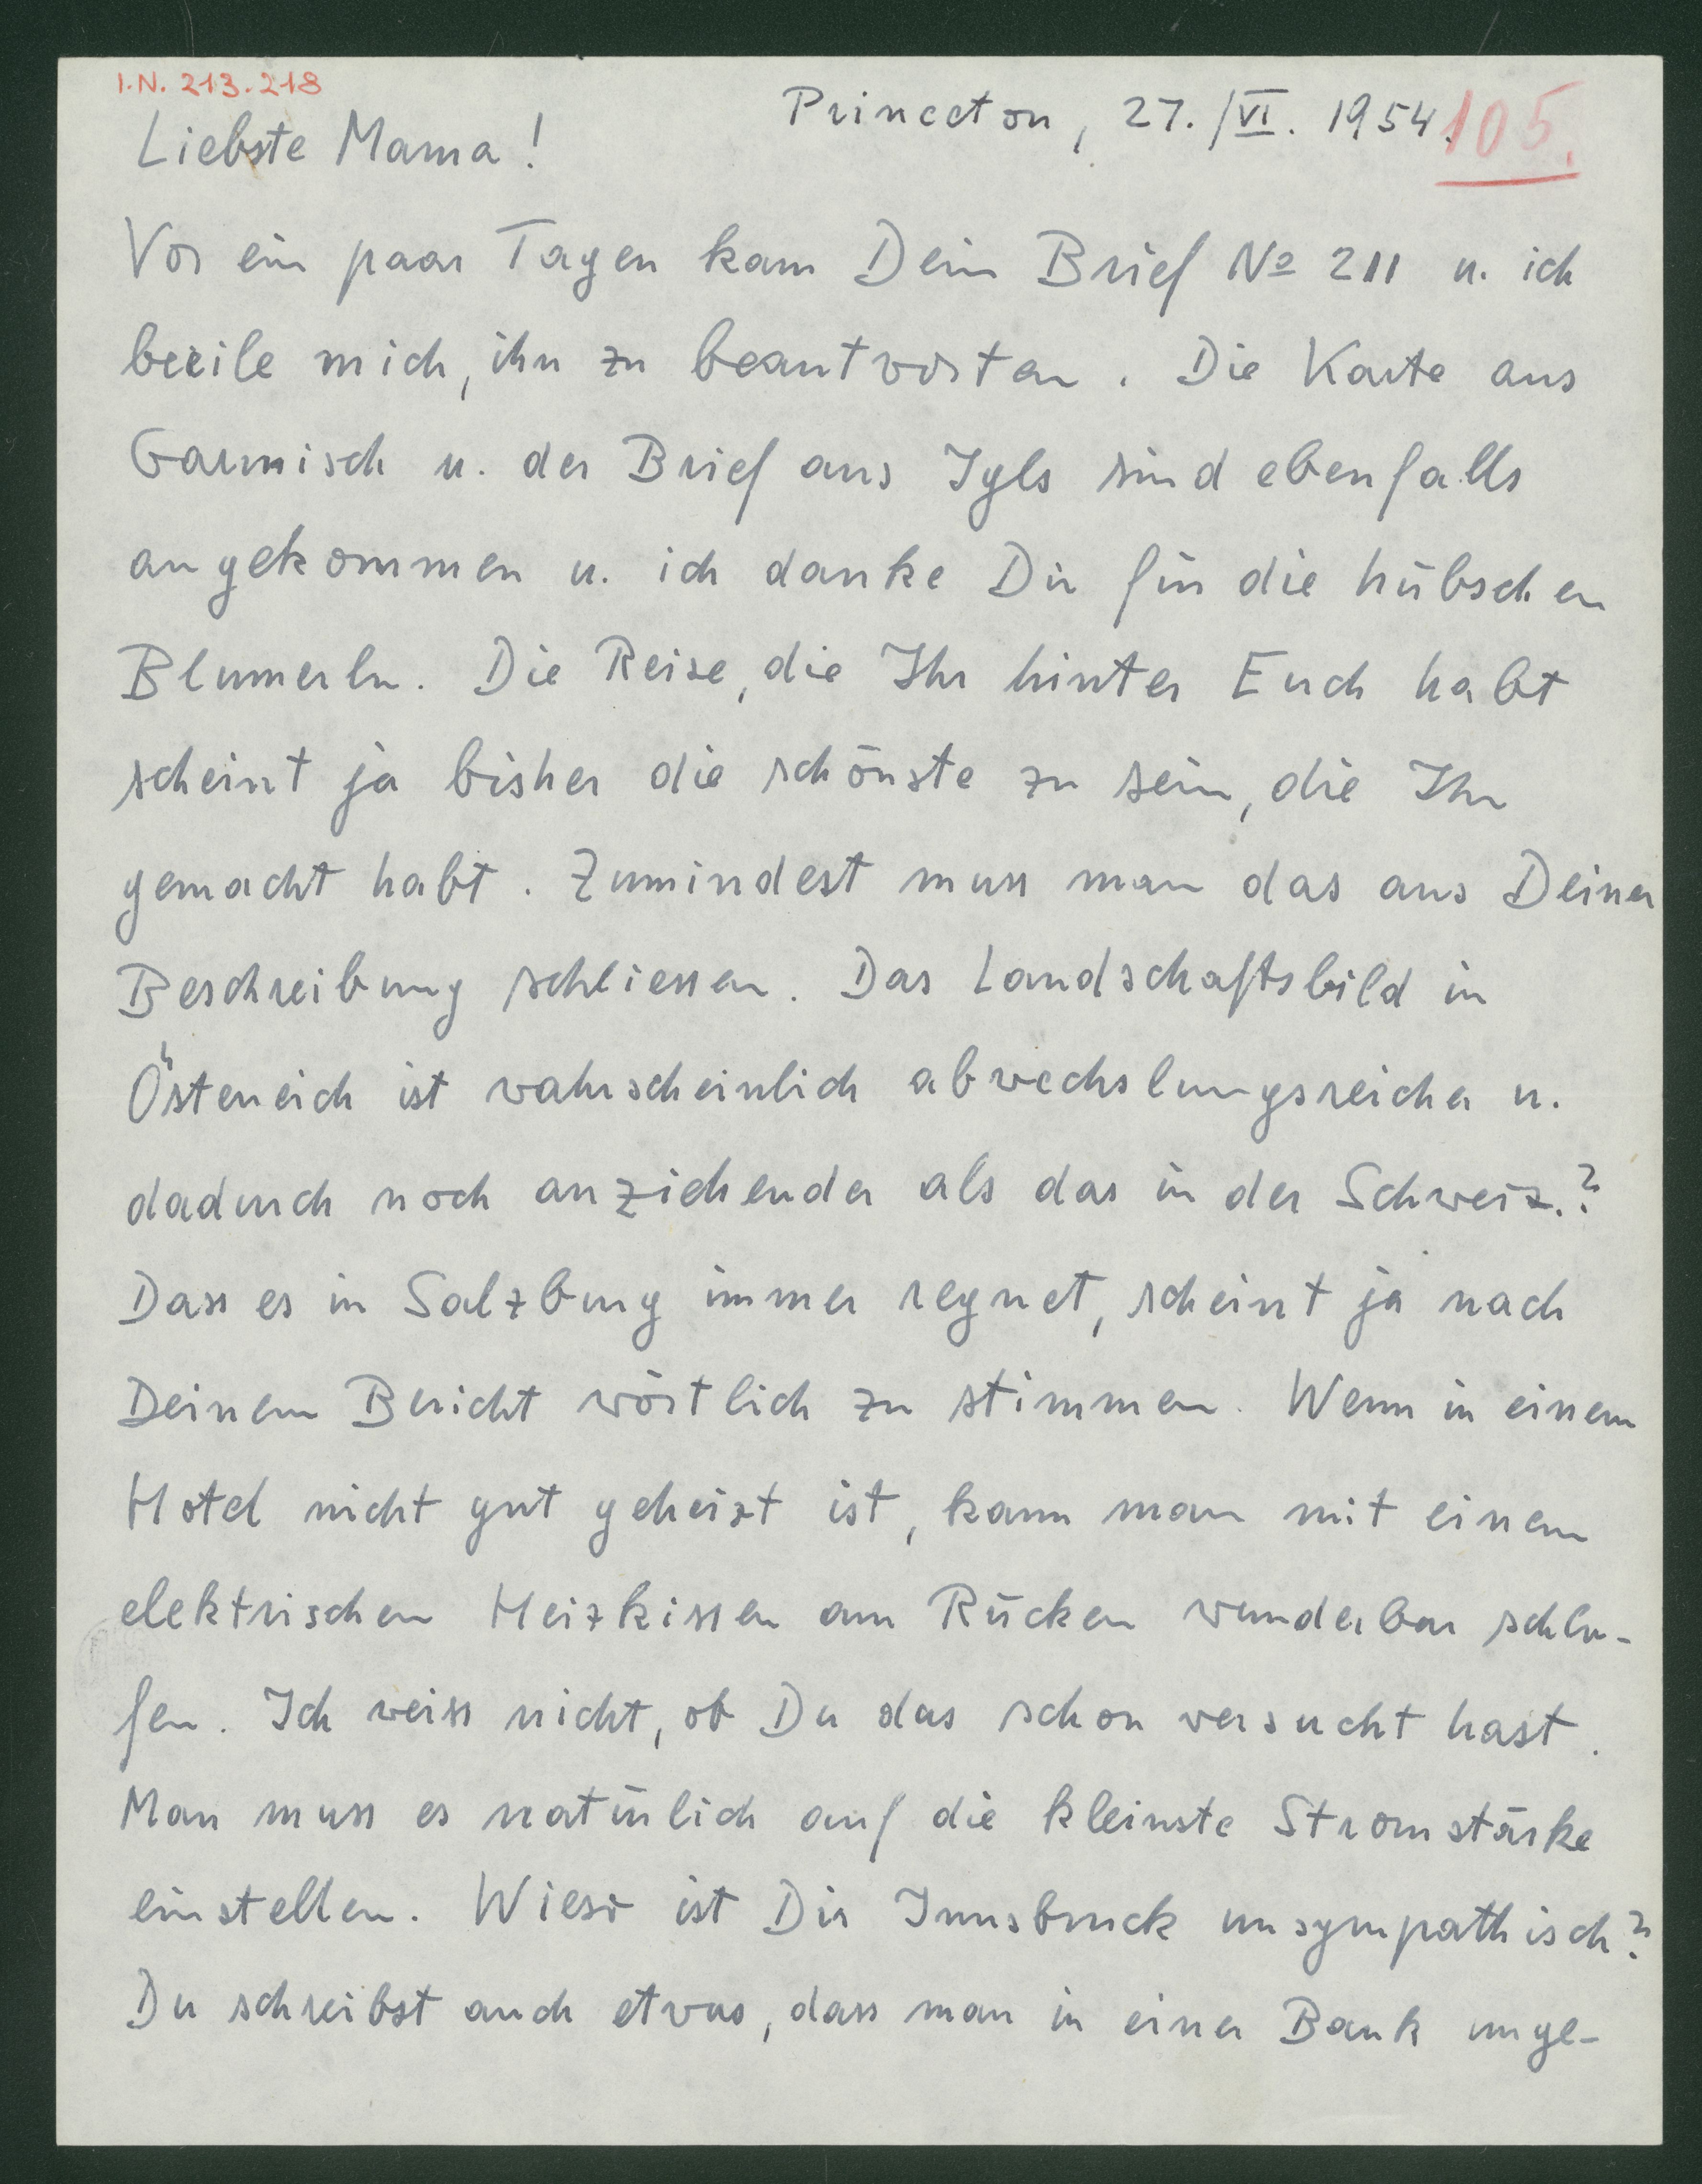 I.N. 213.218
Princeton, 27./VI. 1954.
105.
Liebste Mama!
Vor ein paar Tagen kam Dein Brief No 211 u. ich
beeile mich, ihn zu beantworten. Die Karte aus
Garmisch u. der Brief aus Igls sind ebenfalls
angekommen u. ich danke Dir für die hübschen
Blumerln. Die Reise, die Ihr hinter Euch habt
scheint ja bisher die schönste zu sein, die Ihr
gemacht habt. Zumindest muss man das aus Deiner
Beschreibung schliessen. Das Landschaftsbild in
Österreich ist wahrscheinlich abwechslungsreicher u.
dadurch noch anziehender als das in der Schweiz.?
Dass es in Salzburg immer regnet, scheint ja nach
Deinem Bericht wörtlich zu stimmen. Wenn in einem
Hotel nicht gut geheizt ist, kann man mit einem
elektrischen Heizkissen am Rücken wunderbar schla-
fen. Ich weiss nicht, ob Du das schon versucht hast.
Man muss es natürlich auf die kleinste Stromstärke
einstellen. Wieso ist Dir Innsbruck unsympathisch?
Du schreibst auch etwas, dass man in einer Bank unge-